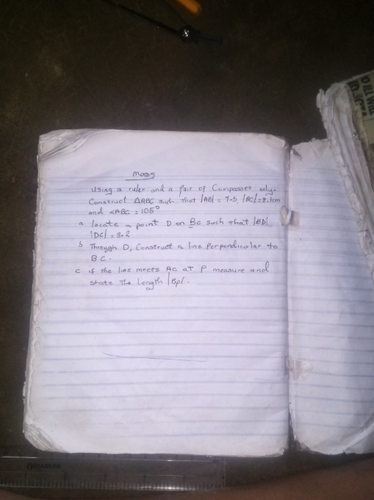 Maths
Using a ruler and a pair of Compasses only.
Construct ∆ABC such that |AB| = 7.5, |BC| = 8.1cm
and <ABC = 105°
a locate a point D on BC such that |BD|
|DC| = 3.2
b Through D, Construct a line Perpendicular to
BC.
c if the line meets AC at P measure and
state the length |BP|.